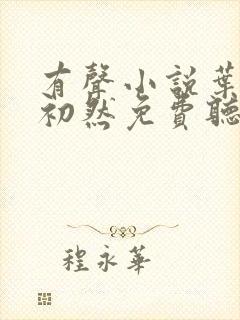 有聲小說葉
初然免費聽
程永華